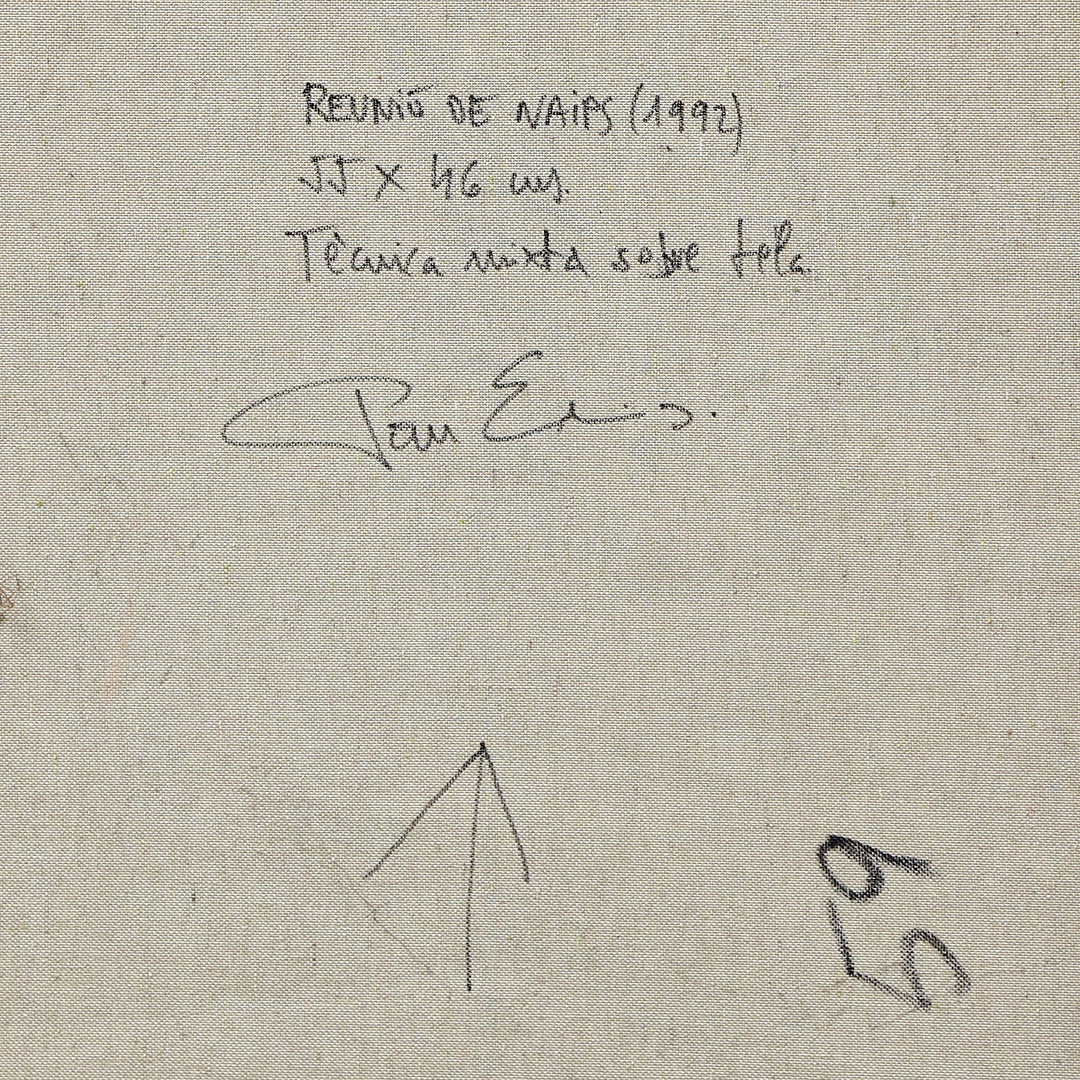 REUNIÓ DE NAIPS (1992)
55 X 46 cms.
Tècnica mixta sobre tela.
59